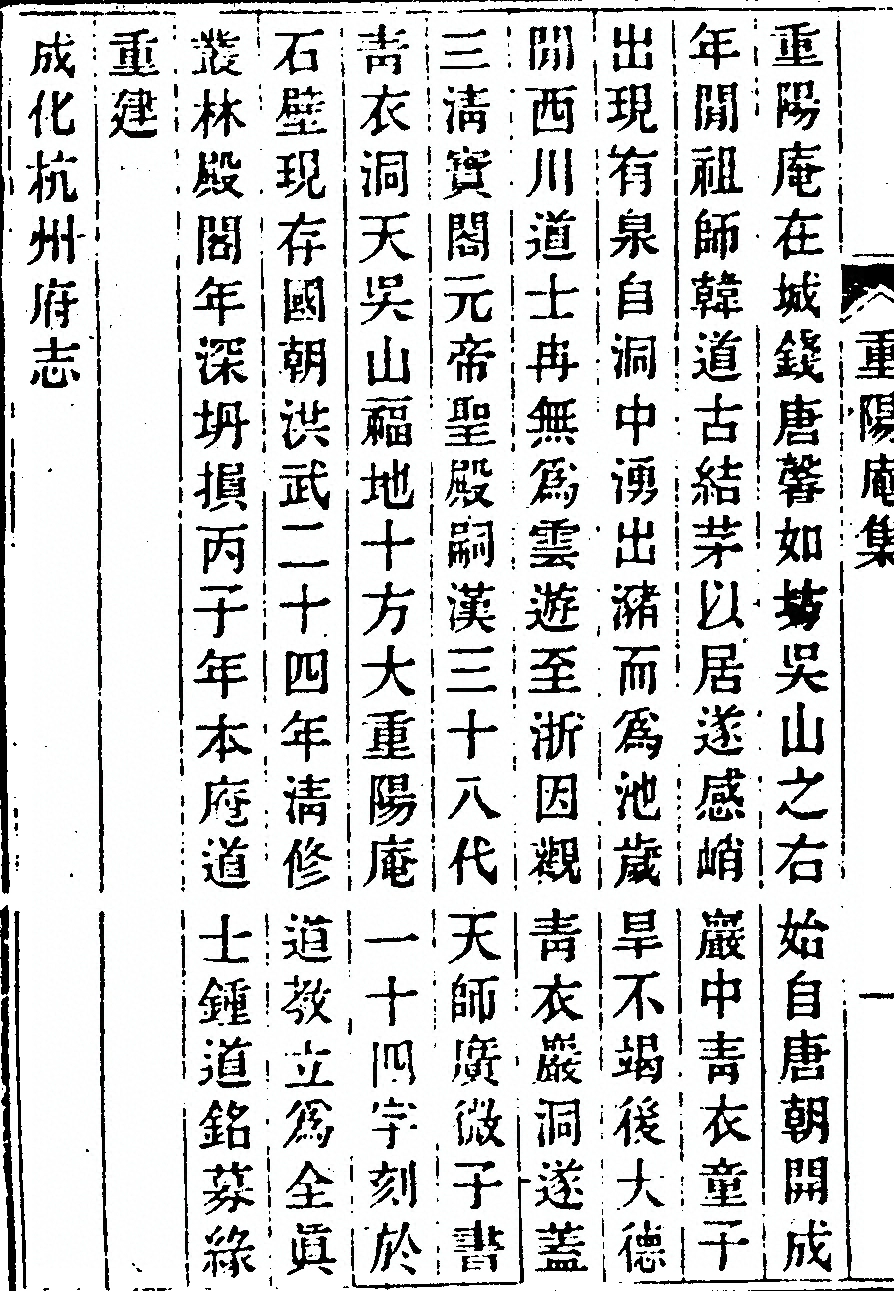 重陽庵集
一
重陽庵在城錢唐馨如坊吳山之右始自唐朝開成
年閒祖師韓道古結茅以居遂感峭巖中靑衣童子
出現有泉自洞中湧出瀦而爲池歲旱不竭後大德
閒西川道士冉無爲雲遊至浙因觀靑衣巖洞遂蓋
三淸寶閣元帝聖殿嗣漢三十八代天師廣微子書
靑衣洞天吳山福地十方大重陽庵一十四字刻於
石壁現存國朝洪武二十四年淸修道敎立爲全眞
叢林殿閣年深坍損丙子年本庵道士鍾道銘募緣
重建
成化杭州府志